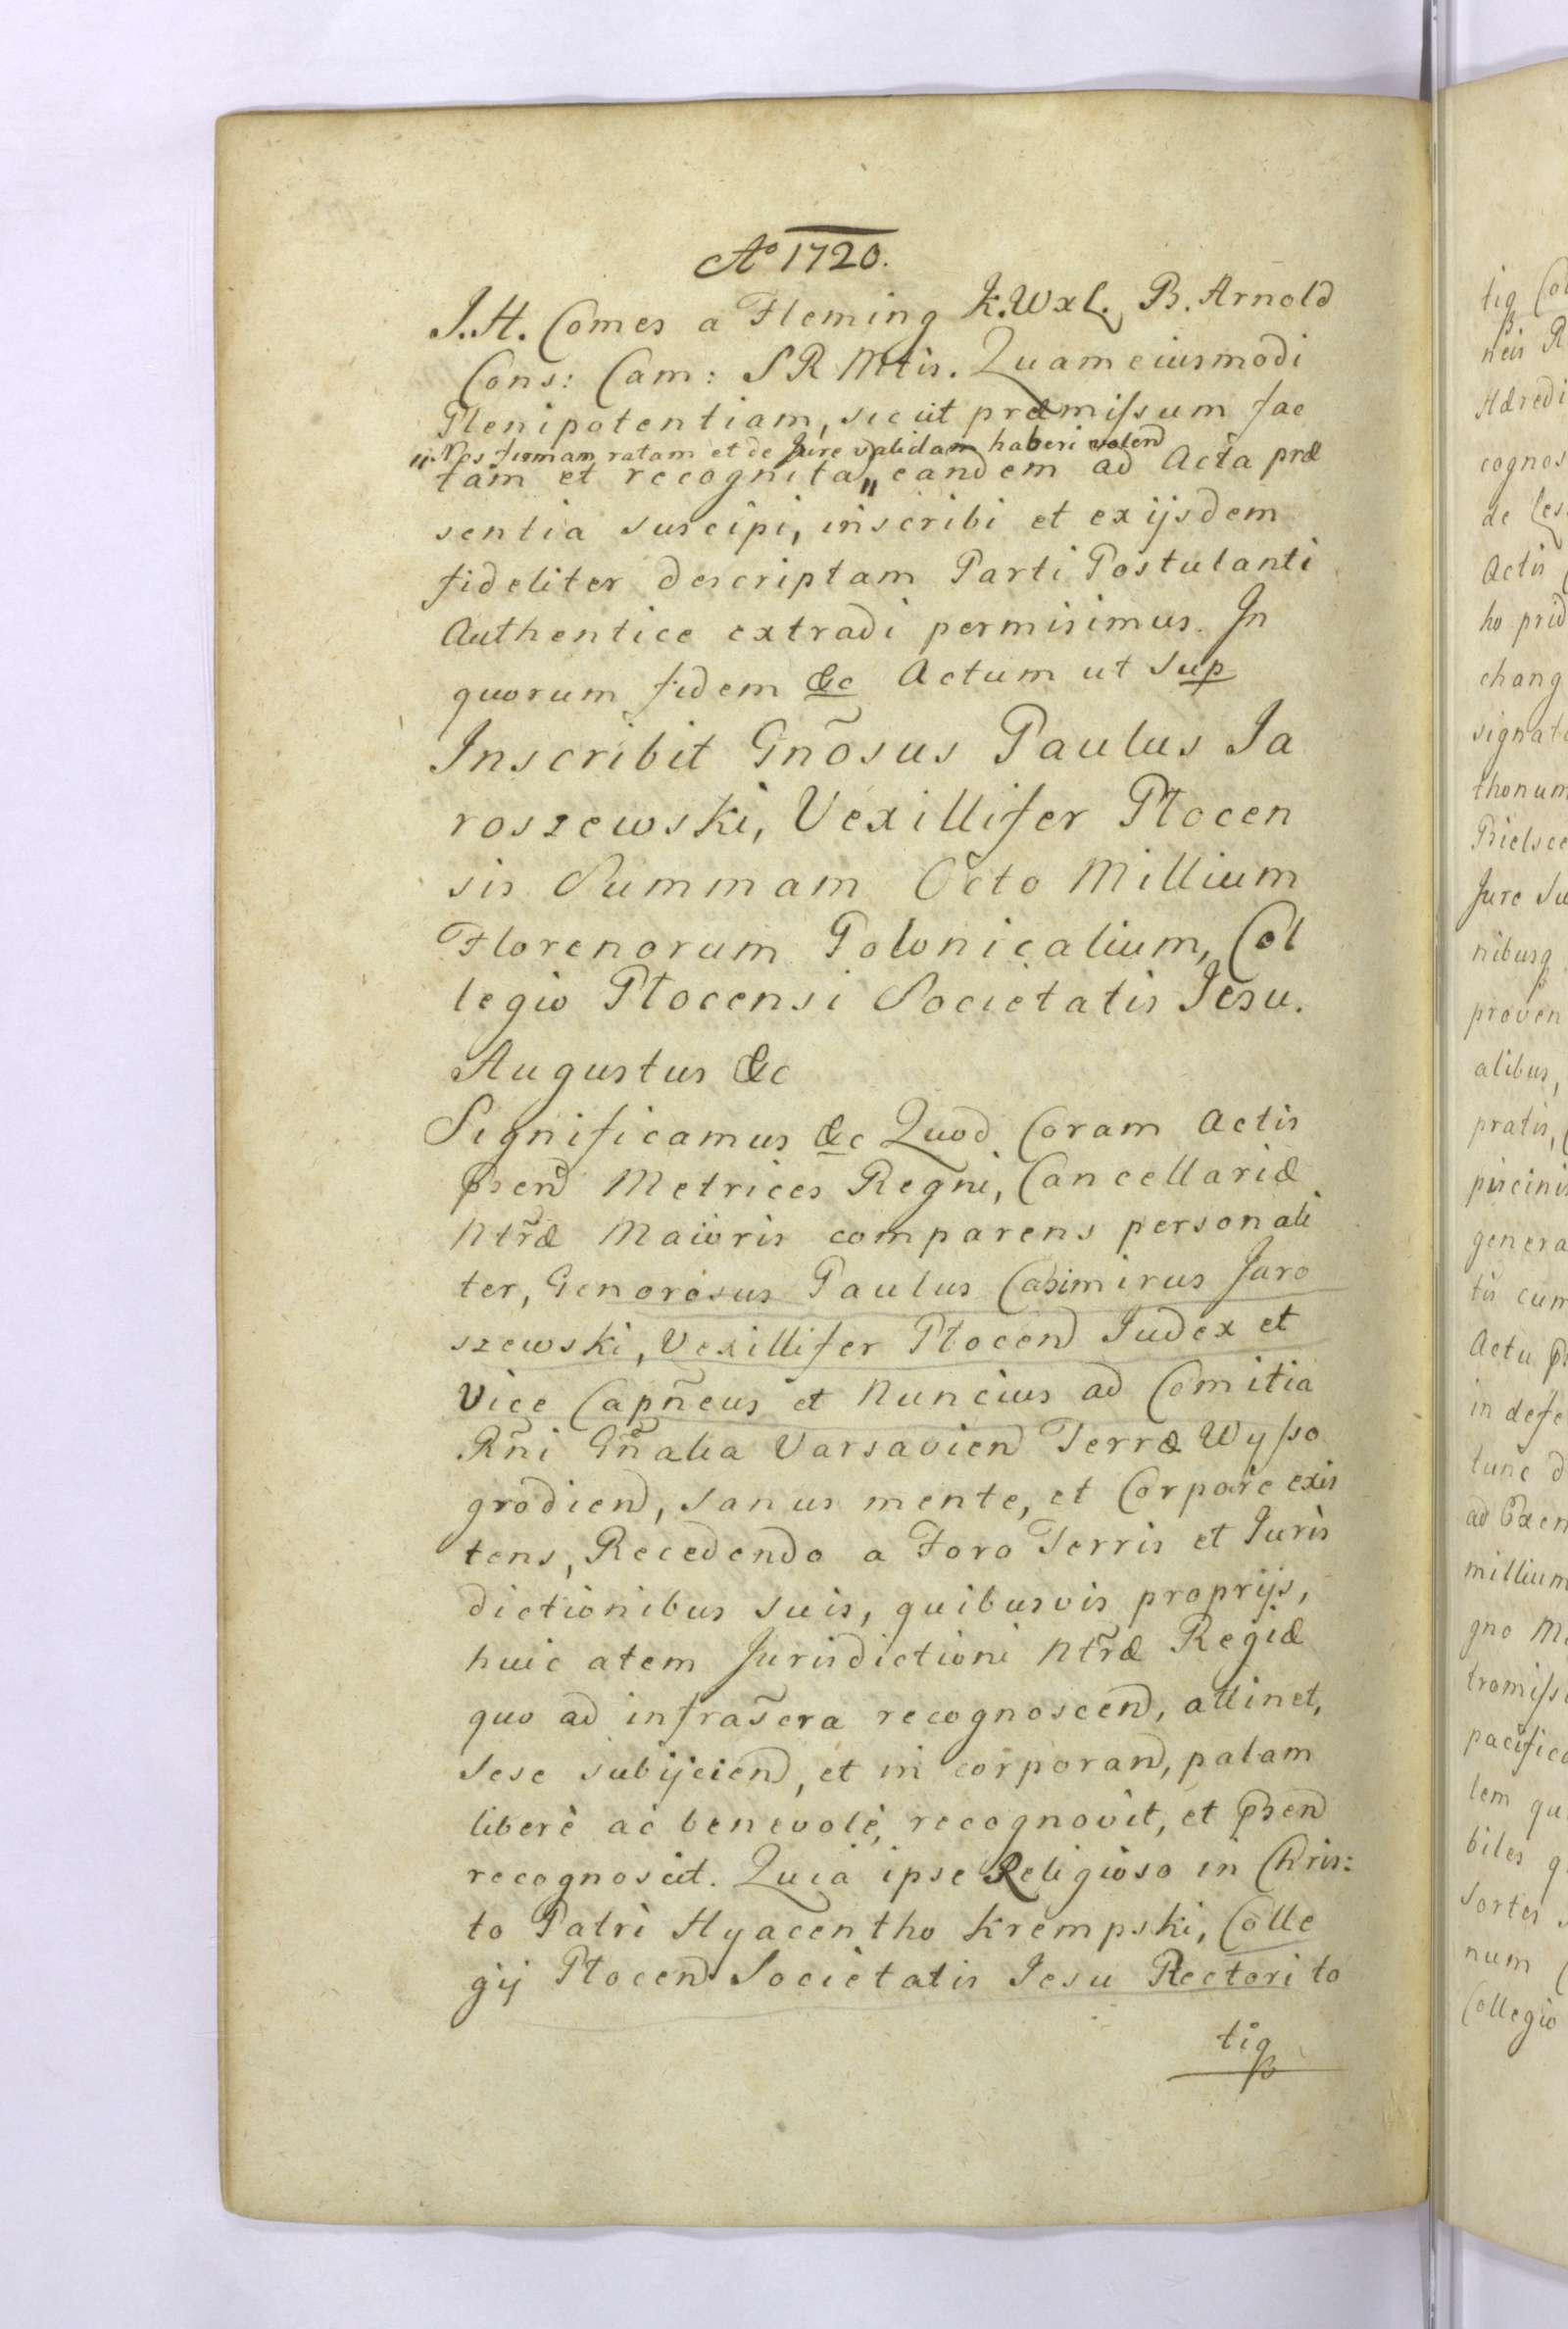 Aº 1720.
J. H. Comes a Fleming K. Wxl. B. Arnold
Cons: Cam: S R Mtis. Quam eiusmodi
Plenipotentiam, sicut præmissum fac
„ Nos firmam ratam et de Jure validam haberi volend
tam et recognita „ eandem ad Acta præ
sentia suscipi, inscribi et exijsdem
fideliter descriptam Parti Postulanti
Authentice extradi permisimus. In
quorum fidem &c Actum ut sup
Inscribit Gñosus Paulus Ja
roszewski, Vexillifer Plocen
sis Summam Octo Millium
Florenorum Polonicalium, Col
legio Plocensi Societatis Jesu.
Augustus &c
Significamus &c Quod Coram Actis
pñsend Metrices Regni, Cancellariæ
Ntræ Maioris comparens personali
ter, Generosus Paulus Casimirus Jaro
szewski, Vexillifer Plocend Judex et
Vice Capñeus et Nuncius ad Comitia
Rñi Gñalia Varsaviend Terræ Wysso
grodiend, sanus mente, et Corpore exis
tens, Recedendo a Foro Terris et Juris
dictionibus suis, quibusvis proprijs,
huic atem Jurisdictioni Ntræ Regiæ
quo ad infrascra recognoscend, attinet,
sese subijciend, et in corporand, palam
liberè ac benevolè, recognovit, et psend
recognoscit. Quia ipse Religioso in Chris:
to Patri Hyacentho Krempski, Colle
gij Plocend Societatis Jesu Rectori to
tiq
tiq Col
neis R
Hæredi
cognos
de Les
Actis
ho prid
chang
signato
thonum
Bielsce
Jure su
nibusq
proven
alibus,
pratis,
piscinis
genera
tis cum
Actu
in defe
tunc d
ad
millium
gno M
tromiss
pacifico
lem qu
biles q
sortes
num
Collegio